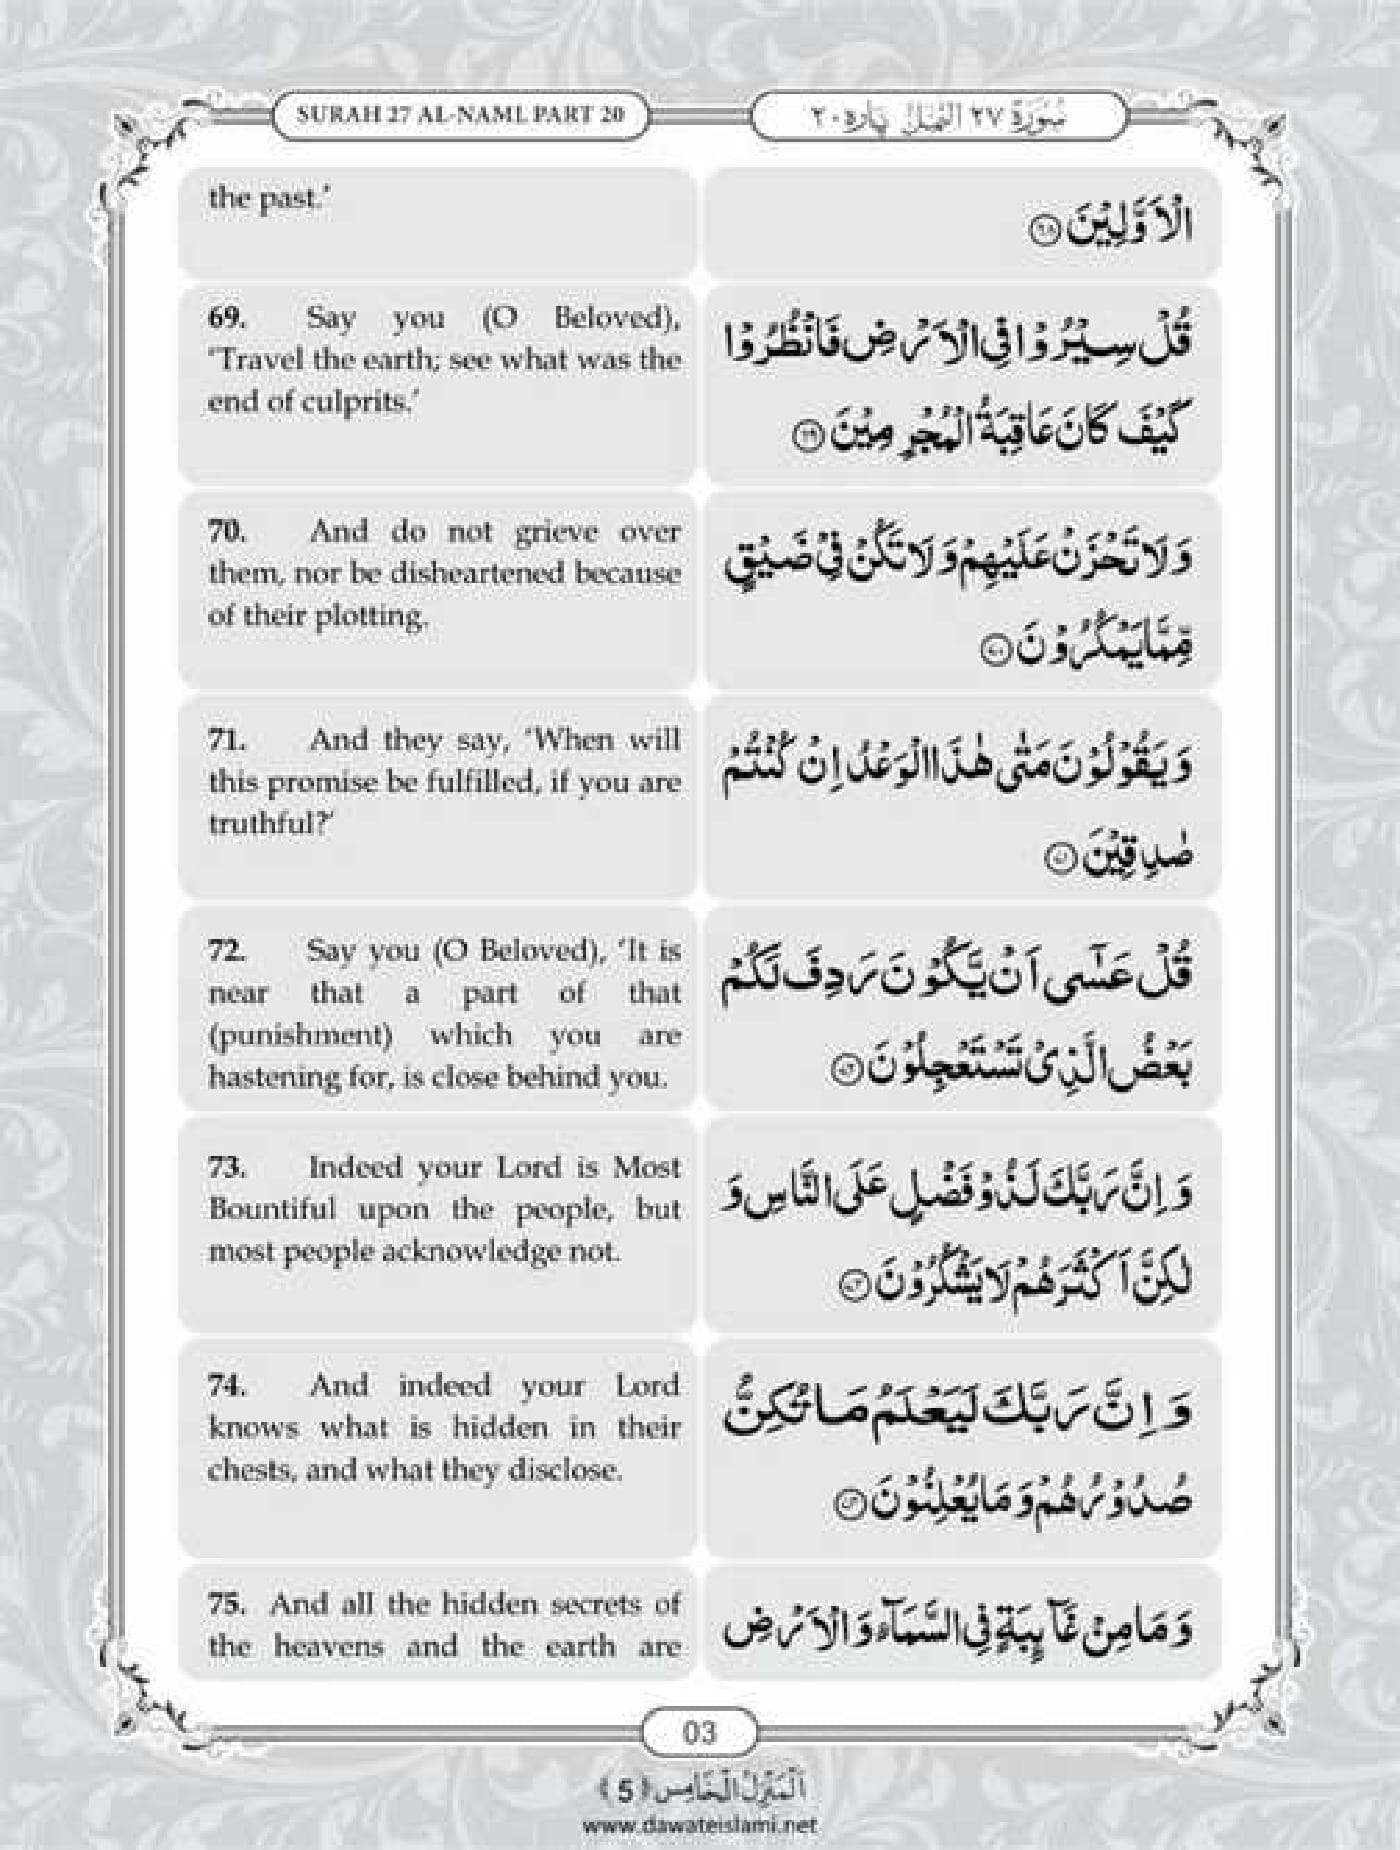 SURAH 27 AL-NAML PART 20
سُوْرَةُ ٢٧ النَّمْل پارہ ٢٠
the past.’
الْاَوَّلِيْنَ ﴿٦٨﴾
69. Say you (O Beloved),
‘Travel the earth; see what was the
end of culprits.’
قُلْ سِيْرُوْا فِي الْاَرْضِ فَانْظُرُوْا
كَيْفَ كَانَ عَاقِبَةُ الْمُجْرِمِيْنَ ﴿٦٩﴾
70. And do not grieve over
them, nor be disheartened because
of their plotting.
وَلَا تَحْزَنْ عَلَيْهِمْ وَلَا تَكُنْ فِيْ ضَيْقٍ
مِّمَّا يَمْكُرُوْنَ ﴿٧٠﴾
71. And they say, ‘When will
this promise be fulfilled, if you are
truthful?’
وَيَقُوْلُوْنَ مَتٰى هٰذَا الْوَعْدُ اِنْ كُنْتُمْ
صٰدِقِيْنَ ﴿٧١﴾
72. Say you (O Beloved), ‘It is
near that a part of that
(punishment) which you are
hastening for, is close behind you.
قُلْ عَسٰٓى اَنْ يَّكُوْنَ رَدِفَ لَكُمْ
بَعْضُ الَّذِيْ تَسْتَعْجِلُوْنَ ﴿٧٢﴾
73. Indeed your Lord is Most
Bountiful upon the people, but
most people acknowledge not.
وَ اِنَّ رَبَّكَ لَذُوْ فَضْلٍ عَلَى النَّاسِ وَ
لٰكِنَّ اَكْثَرَهُمْ لَا يَشْكُرُوْنَ ﴿٧٣﴾
74. And indeed your Lord
knows what is hidden in their
chests, and what they disclose.
وَ اِنَّ رَبَّكَ لَيَعْلَمُ مَا تُكِنُّ
صُدُوْرُهُمْ وَمَا يُعْلِنُوْنَ ﴿٧٤﴾
75. And all the hidden secrets of
the heavens and the earth are
وَمَا مِنْ غَآىِٕبَةٍ فِي السَّمَآءِ وَالْاَرْضِ
03
اَلْمَنْزِلُ الْخَامِس ﴿5﴾
www.dawateislami.net